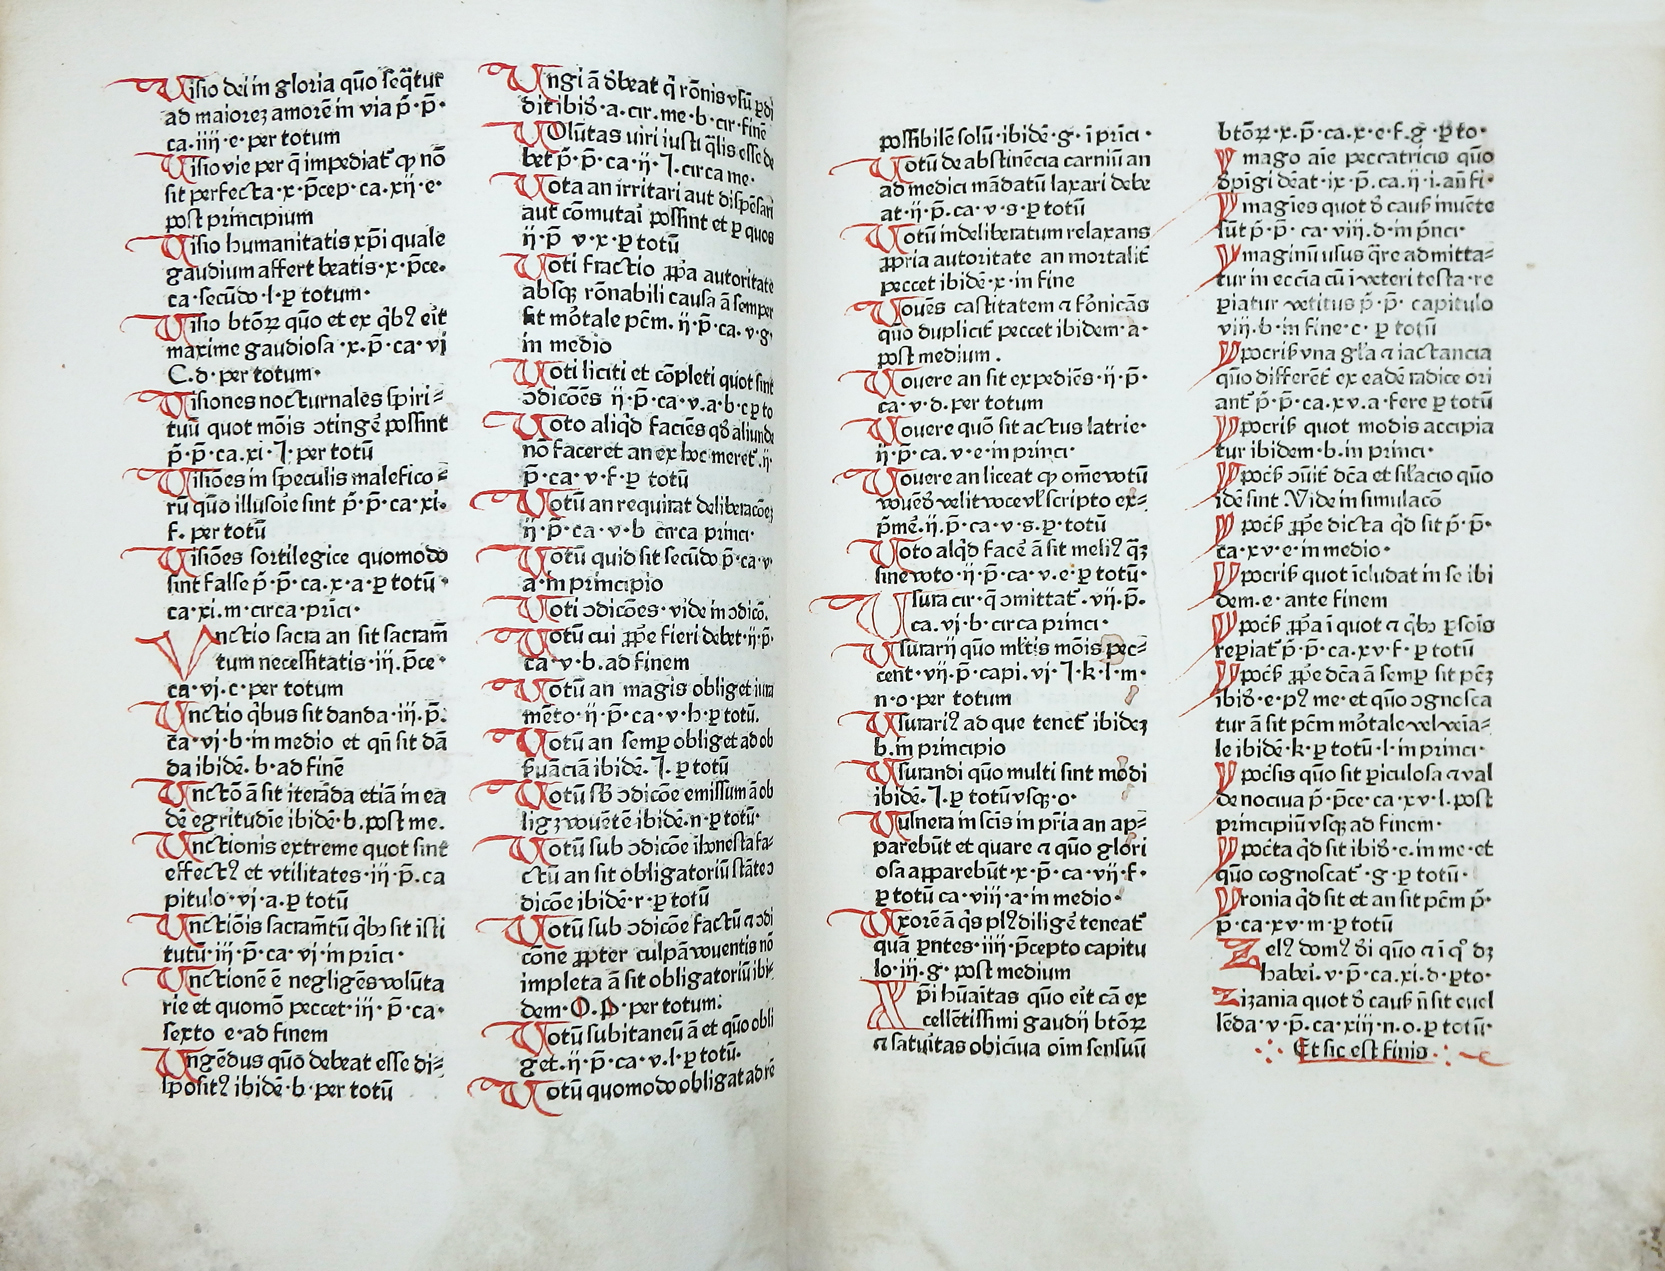 Uisio dei in gloria quō seq̄tur
ad maiorez amorē in via p̄·p̄·
ca·iiii·e·per totum
Uisio vie per q̄ impediat̄ qp nō
sit perfecta·x·p̄cep·ca·xij·e·
post principium
Uisio humanitatis xp̄i quale
gaudium affert beatis·x·p̄ce·
ca·secūdo·l·ꝑ totum·
Uisio btōꝝ quō et ex q̄bꝰ eit̄
maxime gaudiosa·x·p̄·ca·vj
C.d·per totum·
Uisiones nocturnales spiri⸗
tuū quot mōis ɔtingē possint
p̄·p̄·ca·xi·J·per totū
Uisiōes in speculis malefico⸗
rū quō illusoīe sint p̄·p̄·ca·xi·
f·per totū
Uisiōes sortilegice quomodo
sint false p̄·p̄·ca·x·a·ꝑ totū·
ca·xi·m·circa·prīci·
Unctio sacra an sit sacram̄
tum necessitatis·iij·p̄ce·
ca·vj·c·per totum
Unctio q̄bus sit danda·iij·p̄·
ca·vj·b·in medio et qn̄ sit dā
da ibidē·b·ad finē
Unctō ā sit iterāda etiā in ea
dē egritudīe ibidē·b·post me·
Unctionis extreme quot sint
effectꝰ et vtilitates·iij·p̄·ca
pitulo·vj·a·ꝑ totū
Unctiōis sacram̄tū q̄bꝫ sit isti
tutū·iij·p̄·ca·vj·in prīci·
Unctionē ē negligēs volūta
rie et quomō peccet·iij·p̄·ca·
sexto e·ad finem
Ungēdus quō debeat esse di⸗
spositꝰ ibidē·b·per totū
Ungi ā d̄beat q̄ rōnis vsū ꝑdi
dit ibid̄·a·cir·me·b·cir·finē
Uolūtas viri iusti q̄lis esse de
bet p̄·p̄·ca·ij·J·circa me·
Uota an irritari aut dispēsari
aut cōmutari possint et ꝑ quos
ij·p̄·v·x·ꝑ totū
Uoti fractio ꝓpa autoritate
absqꝫ rōnabili causa ā semper
sit mōtale pc̄m·ij·p̄·ca·v·g·
in medio
Uoti liciti et cōpleti quot sint
ɔdicōēs ij·p̄·ca·v·a·b·c·ꝑ to
Uoto aliqd̄ faciēs qd̄ aliunde
nō faceret an ex hoc meret̄·ij·
p̄·ca·v·f·ꝑ totū
Uotū an requirat deliberacōez
ij·p̄·ca·v·b circa prīnci·
Uotū quid sit secūdo p̄·ca·v·
a·in principio
Uoti ɔdicōes·vide in ɔdicō.
Uotū cui ꝓpe fieri debet·ij·p̄·
ca·v·b·ad finem
Uotū an magis obliget iura
mēto·ij·p̄·ca·v·h·ꝑ totū.
Uotū an semꝑ obliget ad ob
ẜuāciā ibidē·J·ꝑ totū
Uotū sb̄ ɔdicōe emissum ā ob
ligꝫ vouētē ibidē·n·ꝑ totū·
Uotū sub ɔdicōe ihonesta fa⸗
ctū an sit obligatoriū stāte ɔ
dicōe ibidē·r·ꝑ totū
Uotū sub ɔdicōe factū ⁊ ɔdi
cōne ꝓpter culpā vouentis nō
impleta ā sit obligatoriū ibi⸗
dem·O·P·per totum:
Uotū subitaneū ā et quō obli
get·ij·p̄·ca·v·l·ꝑ totū·
Uotū quomodo obligat ad rē
possibilē solū·ibidē·g·ī prīci·
Uotū de abstinēcia carniū an
ad medici mādatū laxari debe
at·ij·p̄·ca·v·s·ꝑ totū
Uotū indeliberatum relaxans
ꝓpria autoritate an mortalit̄
peccet ibidē·x·in fine
Uouēs castitatem ⁊ fōnicās
quō duplicit̄ peccet ibidem·a·
post medium.
Uouere an sit expediēs·ij·p̄·
ca·v·d·per totum
Uouere quō sit actus latrie·
ij·p̄·ca·v·e·in prīnci·
Uouere an liceat qp om̄e votū
vouēd̄ velit voce vl̄ scripto ex⸗
p̄mē·ij·p̄·ca·v·s·ꝑ totū
Uoto alqd̄ facē ā sit meliꝰ q̄ꝫ
sine voto·ij·p̄·ca·v·e·ꝑ totū·
Usura cir·q̄ ɔmittat̄·vij·p̄·
ca·vj·b·circa prīnci·
Usurarij quō ml̄tis mōis pec⸗
cent·vij·p̄·capi·vj·J·k·l·m·
n·o·per totum
Usurariꝰ ad que tenet̄ ibidez
b·in principio
Usurandi quō multi sint modi
ibidē·J·ꝑ totū vsqꝫ·o·
Uulnera in sc̄is in pr̄ia an ap⸗
parebūt et quare ⁊ quō glori
osa apparebūt·x·p̄·ca·vij·f·
ꝑ totū ca·viij·a·in medio·
Uxorē ā q̄s plꝰ diligē teneat̄
quā ꝑntes·iiij·p̄cepto capitu
lo·iij·g·post medium
Xp̄i hūaītas quō eit̄ cā ex
cellētissimi gaudij btōꝝ
⁊ satuitas obiciua oim̄ sensuū
btōꝝ·x·p̄·ca·x·e·f·g·ꝑ to·
Ymago aīe peccatricis quō
dpīgi d̄eat·ix·p̄·ca·ij·i·an̄ fi·
Ymagīes quot d̄ causꝭ inuēte
sūt p̄·p̄·ca·viij·d·in pr̄nci·
Ymaginū usus q̄re admitta⸗
tur in eccīa cū ī veteri testa·re
periatur vetitus p̄·p̄·capitulo
viij·b·in fine·c·ꝑ totū
Ypocrisꝭ vna gl̄a ⁊ iactancia
quō differēt̄ ex eadē radice ori
ant̄ p̄·p̄·ca·xv·a·fere ꝑ totū
Ypocrisꝭ quot modis accipia
tur ibidem·b·in prīnci·
Ypoc̄sꝭ ɔ̄uit̄ dc̄a et sil̄acio quō
idē sint·Vide in simulacō
Ypoc̄sꝭ ꝓpe dicta qd̄ sit p̄·p̄·
ca·xv·e·in medio·
Ypocrisꝭ quot īcludat in se ibi
dem·e·ante finem
Ypoc̄sꝭ ꝓpa ī quot ⁊ q̄bꝫ ꝑsōis
reꝑiat̄ p̄·p̄·ca·xv·f·ꝑ totū
Ypoc̄sꝭ ꝓpe dc̄a ā semꝑ sit pc̄ꝫ
ibid̄·e·pꝰ me·et quō ɔgnosca
tur ā sit pc̄m mōtale vel veīa⸗
le ibidē·k·ꝑ totū·l·in prīnci·
Ypoc̄sis quō sit ꝑiculosa ⁊ val
de nociua p̄·p̄ce·ca·xv·l·post
principiū vsqꝫ ad finem·
Ypoc̄ta qd̄ sit ibid̄·c·in me·et
quō cognoscat̄·g·ꝑ totū·
Yronia qd̄ sit et an sit pc̄m p̄·
p̄·ca·xv·m·ꝑ totū
Zelꝰ domꝰ d̄i quō ⁊ ī qͦ dꝫ
haberi·v·p̄·ca·xi·d·ꝑ to·
Zizania quot d̄ causꝭ n̄ sit euel
lēda·v·p̄·ca·xiij·n·o·ꝑ totū·
Et sic est finis